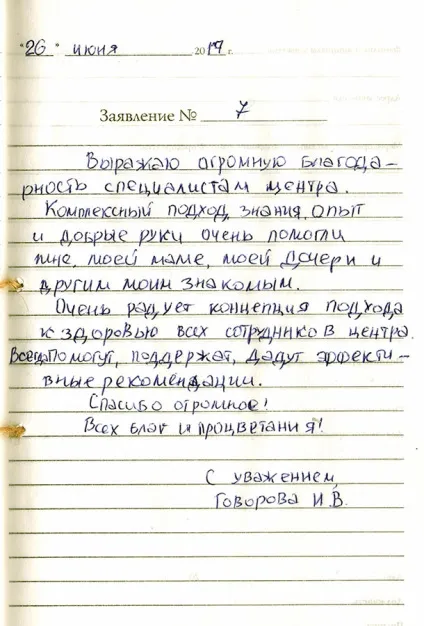 "26" июня 2017 г.
Заявление № 7
Выражаю огромную благода-
рность специалистам центра.
Комплексный подход, знания, опыт
и добрые руки очень помогли
мне, моей маме, моей дочери и
другим моим знакомым.
Очень радует концепция подхода
к здоровью всех сотрудников центра.
Всегда помогут, поддержат, дадут эффекти-
вные рекомендации.
Спасибо огромное!
Всех благ и процветания!
С уважением,
Говорова И.В.